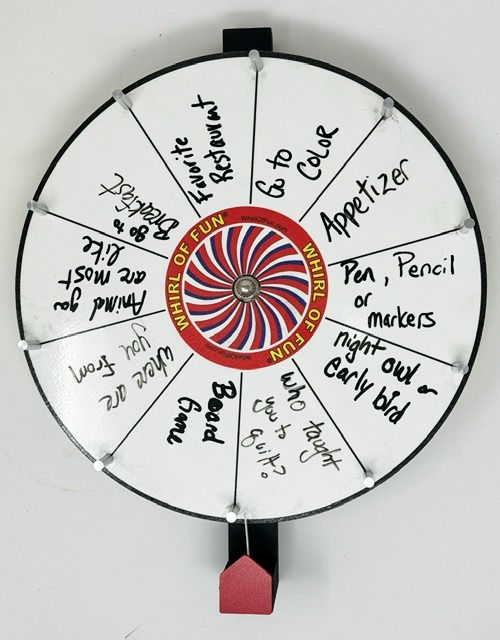 Favorite
Restaurant
Go to
COLOR
Appetizer
Pen, Pencil
or
markers
night owl or
early bird
who taught
you to
quilt?
Board
Game
where are
you from
Animal you
are most
like
go to
Breakfast
WHIRL OF FUN®
WhirlOfFun.com
WHIRL OF FUN®
WhirlOfFun.com